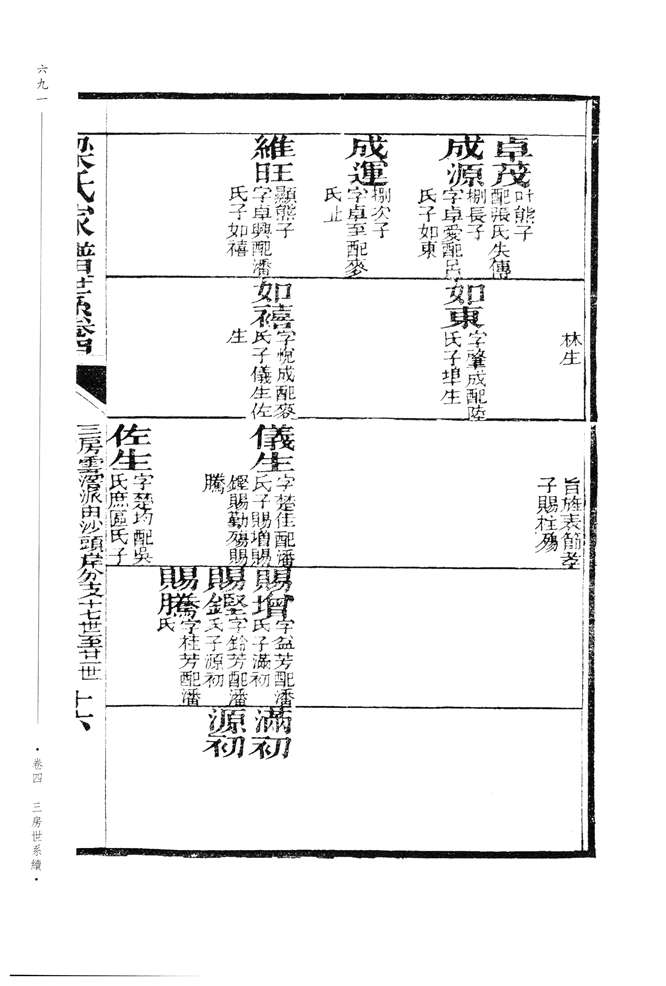 卓茂
叶熊子
配張氏失傳
成源
捌長子
字卓愛配呂
氏子如東
成運
捌次子
字卓至配麥
氏止
維旺
顯熊子
字卓興配潘
氏子如禧
林生
如東
字肇成配陸
氏子埠生
如禧
字悅成配麥
氏子儀生佐
生
旨旌表節孝
子賜柱殤
儀生
字楚佳配潘
氏子賜增賜
鏗賜勤殤賜
騰
佐生
字楚均配吳
氏庶區氏子
賜增
字益芳配潘
氏子滿初
賜鏗
字鈴芳配潘
氏子源初
賜騰
字桂芳配潘
氏
滿初
源初
梁氏家譜世系卷四
三房雲滘派由沙頭房分支十七世至廿一世
十六
六九一
·卷四 三房世系續·